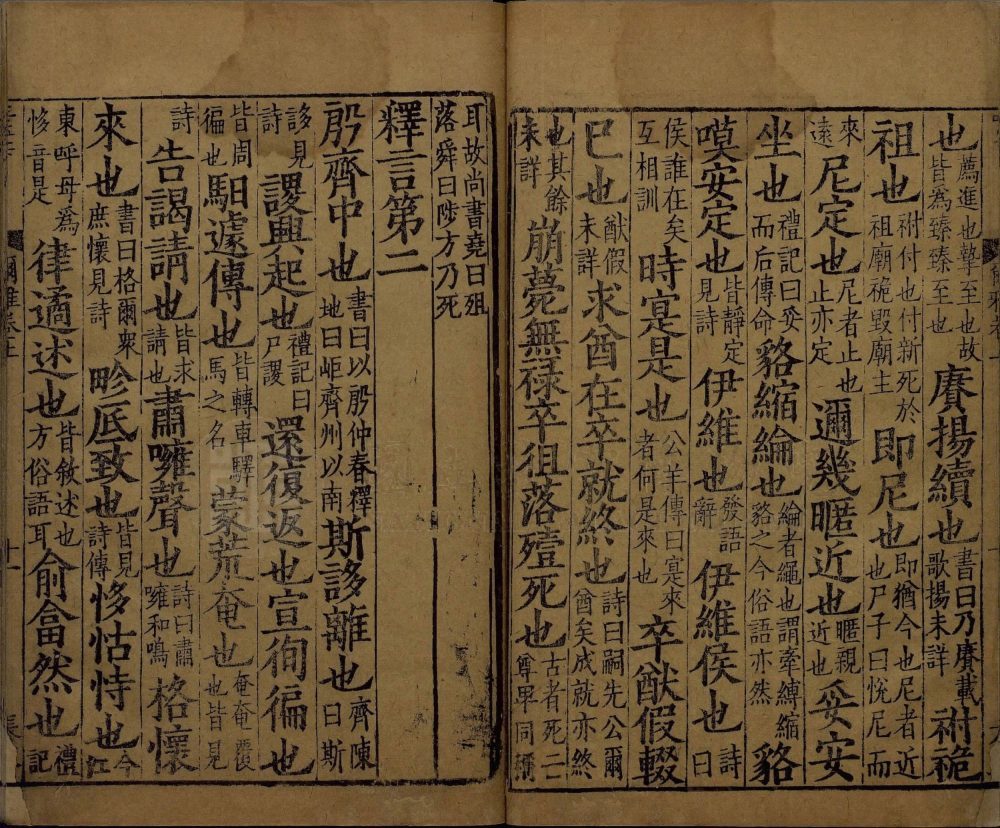 也薦進也摯至也故皆為臻臻至也賡揚續也書曰乃賡載歌揚未詳祔祪
祖也祔付也付新死於祖廟祪毀廟主即尼也即猶今也尼者近也尸子曰悅尼而
來遠尼定也尼者止也止亦定邇幾暱近也暱親近也妥安
坐也禮記曰妥而后傳命貉縮綸也綸者繩也謂牽縛縮貉之今俗語亦然貉
嗼安定也皆靜定見詩伊維也發語辭伊維侯也詩曰
侯誰在矣互相訓時寔是也公羊傳曰寔來者何是來也卒猷假輟
已也猷假未詳求酋在卒就終也詩曰嗣先公爾酋矣成就亦終
也其餘未詳崩薨無禄卒徂落殪死也古者死亡尊卑同稱
耳故尚書堯曰殂落舜曰陟方乃死
釋言第二
殷齊中也書曰以殷仲春釋地曰岠齊州以南斯誃離也齊陳曰斯
誃見詩謖興起也禮記曰尸謖還復返也宣徇徧也
皆周徧也馹遽傳也皆轉車驛馬之名蒙荒奄也奄奄覆也皆見
詩告謁請也皆求請也肅噰聲也詩曰肅噰和鳴格懷
來也書曰格爾衆庶懷見詩畛厎致也皆見詩傳恀怙恃也今江
東呼母為恀音是律遹述也皆敘述也方俗語耳俞畣然也禮記